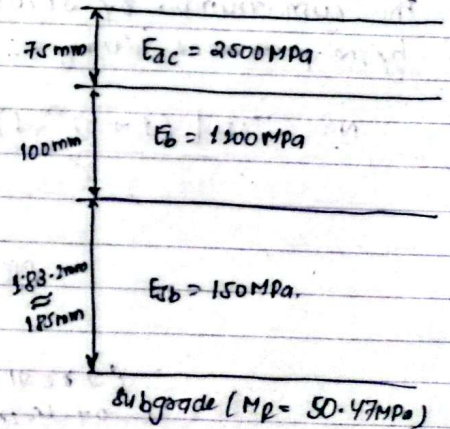 75mm
Eac = 2500MPa
100mm
Eb = 1200MPa
183.2mm
≈
185mm
Esb = 150MPa.
Subgrade (MR = 50.47MPa)